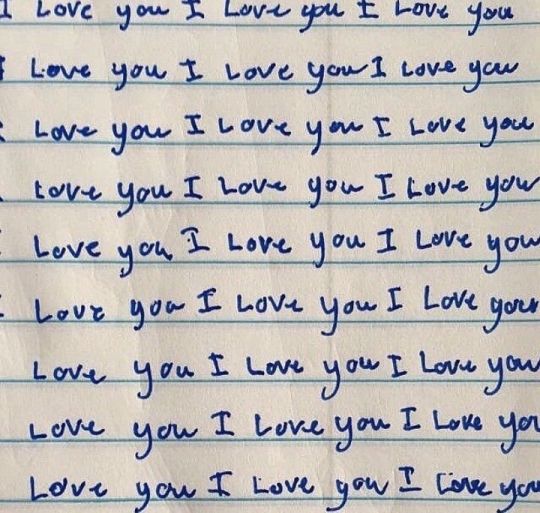 I Love you I Love you I Love you
I Love you I Love you I Love you
I Love you I Love you I Love you
I Love you I Love you I Love you
I Love you I Love you I Love you
I Love you I Love you I Love you
Love you I Love you I Love you
Love you I Love you I Love you
Love you I Love you I Love you